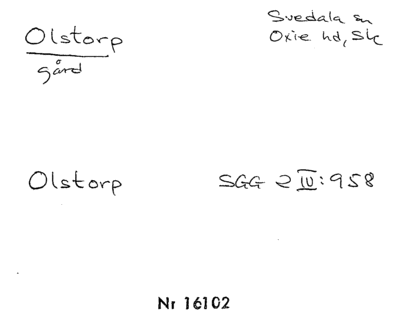 Olstorp
gård
Svedala sn
Oxie hd, Sk
Olstorp SGG 2 IV:958
Nr 16102